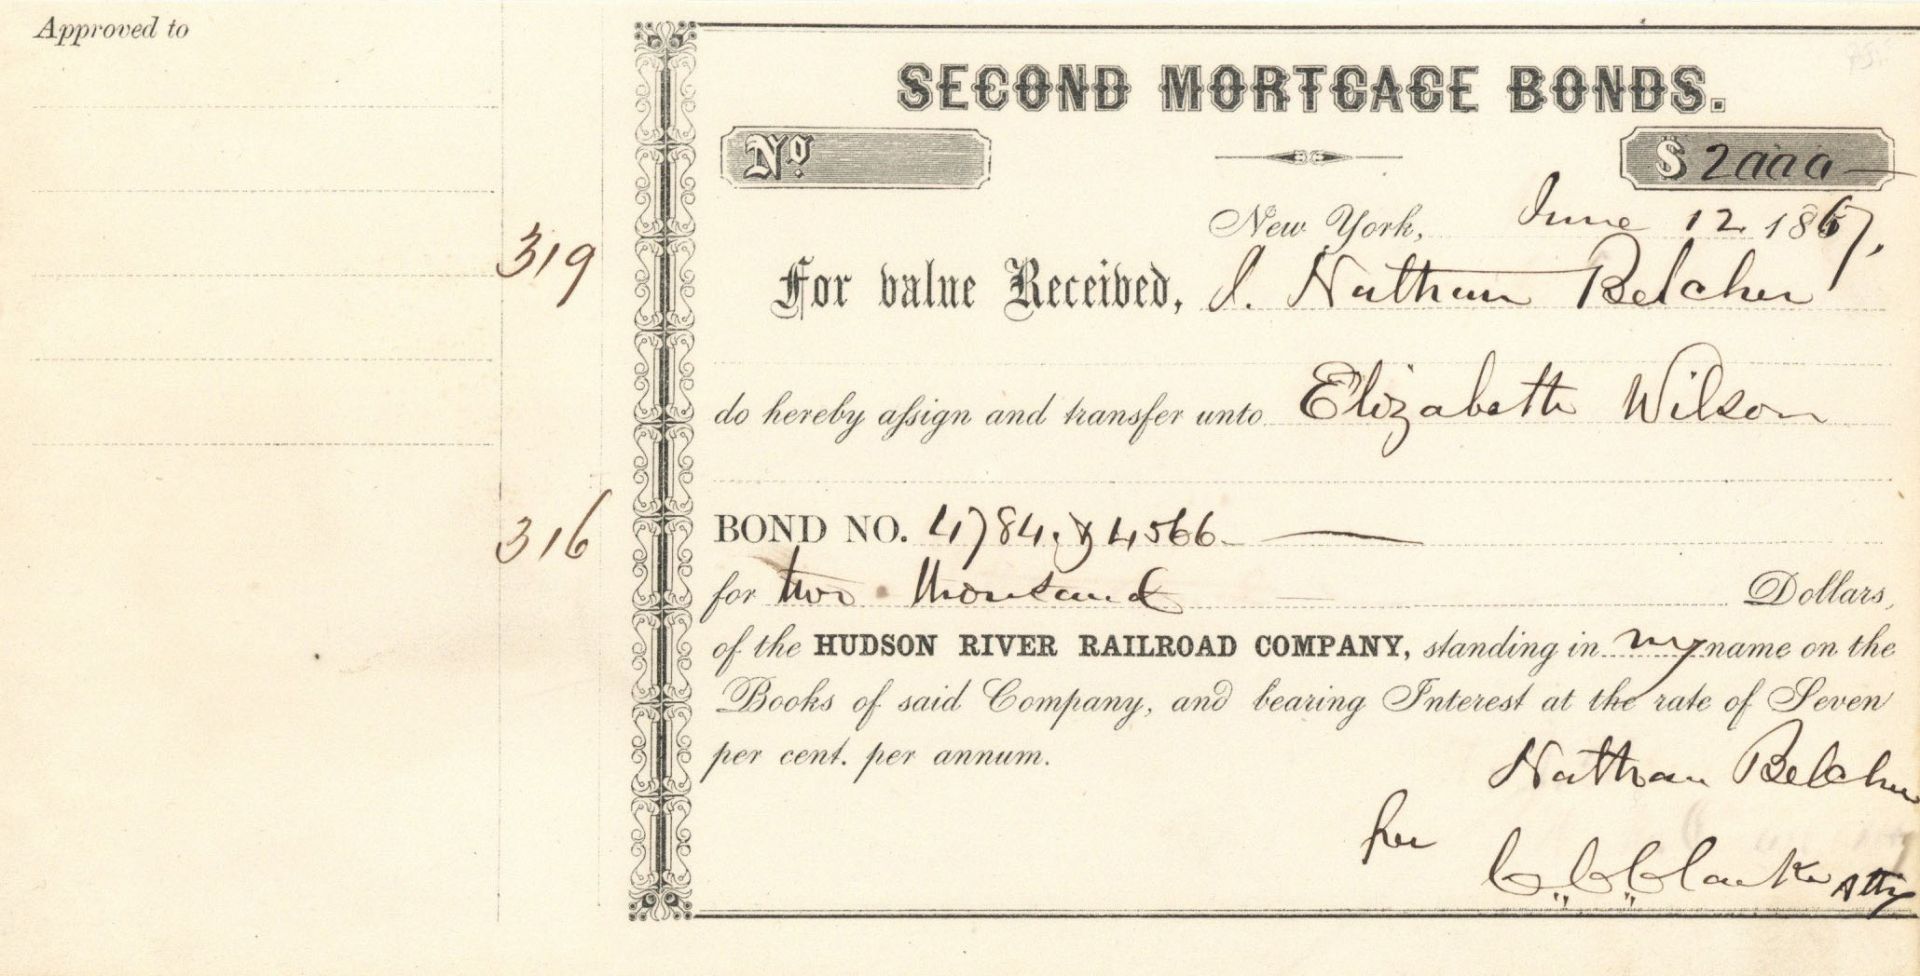 Approved to
319
316
SECOND MORTGAGE BONDS.
No. $2000—
New York, June 12 1867,
For value Received, I. Nathan Belcher
do hereby assign and transfer unto Elizabeth Wilson
BOND NO. 4784, & 4566 —
for two thousand — Dollars,
of the HUDSON RIVER RAILROAD COMPANY, standing in my name on the
Books of said Company, and bearing Interest at the rate of Seven
per cent. per annum.
Nathan Belcher
per
C. C. Clarke Atty